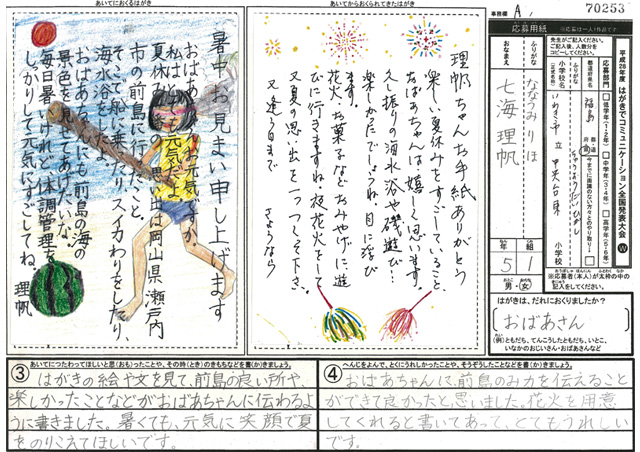 あいてにおくるはがき
あいてからおくられてきたはがき
事務欄 A
70253
暑中お見まい申し上げます
おばあちゃん、お元気ですか。
私はとても元気だよ。
夏休みの一番の思い出は岡山県瀬戸内
市の前島に行ったこと。
そこで船に乗ったりスイカわりをしたり、
海水浴をしたよ。
おばあちゃんにも前島の海の
景色を見せてあげたいな。
毎日暑いけれど、体調管理を
しっかりして元気にすごしてね。
理帆
理帆ちゃんお手紙ありがとう
楽しい夏休みをすごしていること
おばあちゃんは嬉しく思います。
久し振りの海水浴や磯遊び
楽しかったでしょうね 目に浮び
ます。
花火、お菓子などおみやげに遊
びに行きますね。夜花火をして
又夏の思い出を一つつくって下さい
又逢う日まで
さようなら
平成28年度 はがきでコミュニケーション全国発表大会 W
応募用紙
※応募は一人1作品です
先生がご記入ください。
ご記入後、人数分を
コピーしてください。
応募部門
低学年(1・2年)
中学年(3・4年)
高学年(5・6年)
都道府県名
福島
都・道
府・県
今までに面識のない方々とのやり取り
小学校名
(正式名称)
ふりがな
いわき市立 中央台東
小学校
ふりがな
ななみ りほ
おなまえ
七海 理帆
年 5
組 1
男・女
※応募者(本人)が太枠の中の
記入をしてください。
はがきは、だれにおくりましたか?
おばあさん
(例)ともだち、てんこうしたともだち、いとこ、
いなかのおじいさん・おばあさんなど
③
あいてにつたわってほしいと思(おも)ったことや、その時(とき)のきもちなどを書(か)きましょう。
はがきの絵や文を見て、前島の良い所や、
楽しかったことなどがおばあちゃんに伝わるよ
うに書きました。暑くても、元気に笑顔で夏
をのりこえてほしいです。
④
へんじをよんで、とくにうれしかったことや、そうぞうしたことなどを書(か)きましょう。
おばあちゃんに、前島のみ力を伝えること
ができて良かったと思いました。花火を用意
してくれると書いてあって、とてもうれしい
です。